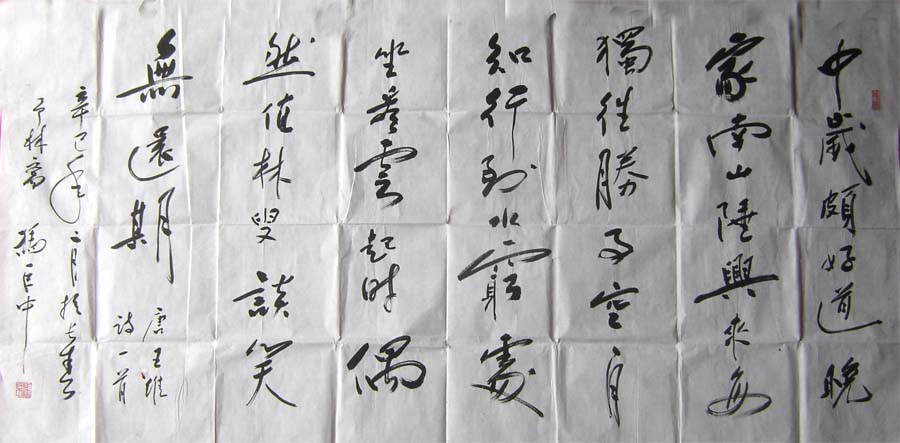 中歲頗好道晚
家南山陲興來每
獨往勝事空自
知行到水窮處
坐看雲起時偶
然值林叟談笑
無還期
唐王維
詩一首
辛巳年二月於長春
林齋 馮 中